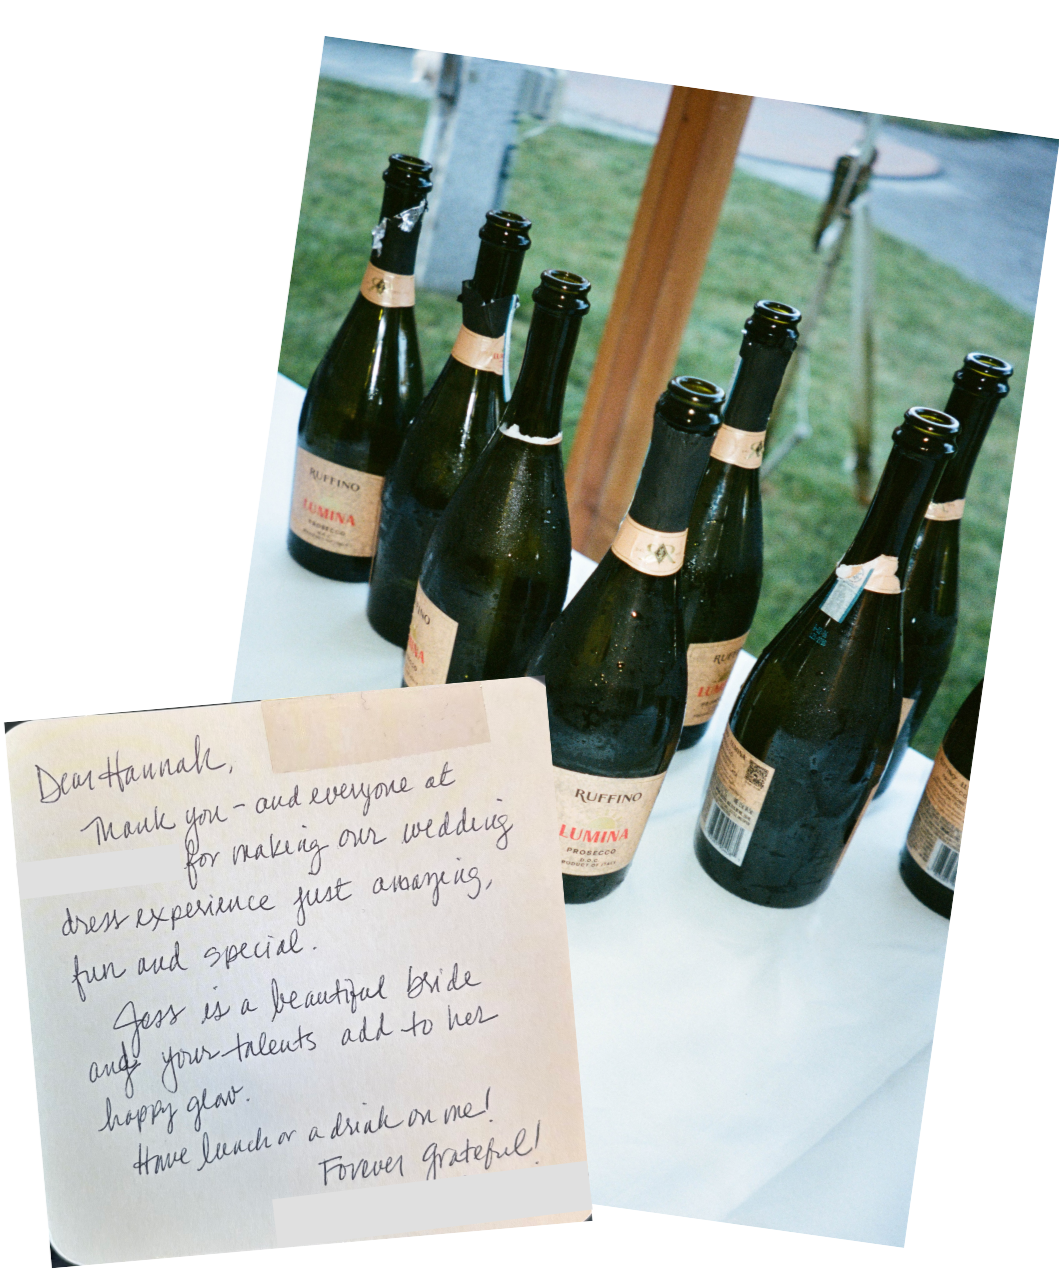 RUFFINO
LUMINA
PROSECCO
RUFFINO
LUMINA
PROSECCO
D.O.C.
PRODUCT OF ITALY
Dear Hannah,
Thank you - and everyone at
for making our wedding
dress experience just amazing,
fun and special.
Jess is a beautiful bride
and your talents add to her
happy glow.
Have lunch or a drink on me!
Forever grateful!